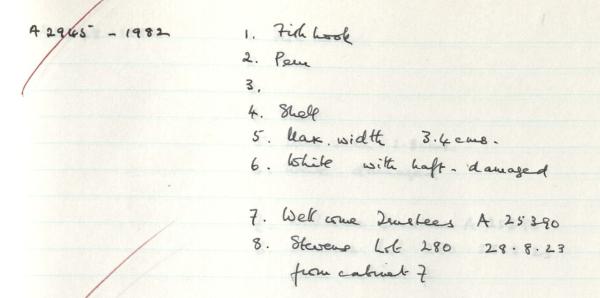 A 2945 - 1982 1. Fish hook
2. Peru
3.
4. Shell
5. Max. width 3.4 cms.
6. White with haft - damaged
7. Wellcome Trustees A 25390
8. Stevens Lot 280 28.8.23
from cabinet 7